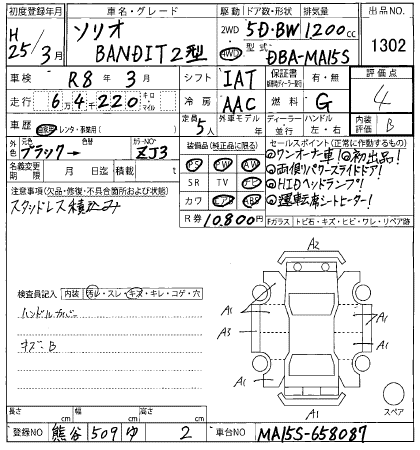 初度登録年月 車名・グレード 駆動 ドア数・形状 排気量 出品NO.
H 25/3月 ソリオ BANDIT2型 2WD 4WD 5D・BW 1200cc 1302
型式 DBA-MA15S
車検 R8年3月 シフト IAT 保証書 有・無 評価点
走行 6万4千220 キロ・マイル 冷房 AAC 燃料 G 4
車歴 自家用 レンタ・事業用( ) 定員 5人 外車モデル 年 ディーラー 並行 ハンドル 左・右 内装評価 B
外色 元色 ブラック→ 色替 カラーNO. ZJ3 装備品(純正品に限る) セールスポイント(正常に作動するもの)
名義変更期限 月 日迄 積載 t PS PW AW
◎ワンオーナー車!◎初出品!
注意事項(欠品・修復・不具合箇所および状態) SR TV ナビ
◎両側パワースライドドア!
スタッドレス積込み カワ エアB ABS
◎HIDヘッドランプ!
◎運転席シートヒーター!
R券 10,800円 Fガラス トビ石・キズ・ヒビ・ワレ・リペア跡
検査員記入 内装 汚レ・スレ・キズ・キレ・コゲ・穴
ハンドルカバー
キズ B
A2
A1 A1
A3 A1
A1 A1
A1
スペア
長さ cm 幅 cm 高さ cm
登録NO 熊谷 509 ゆ 2 車台NO MA15S-658087